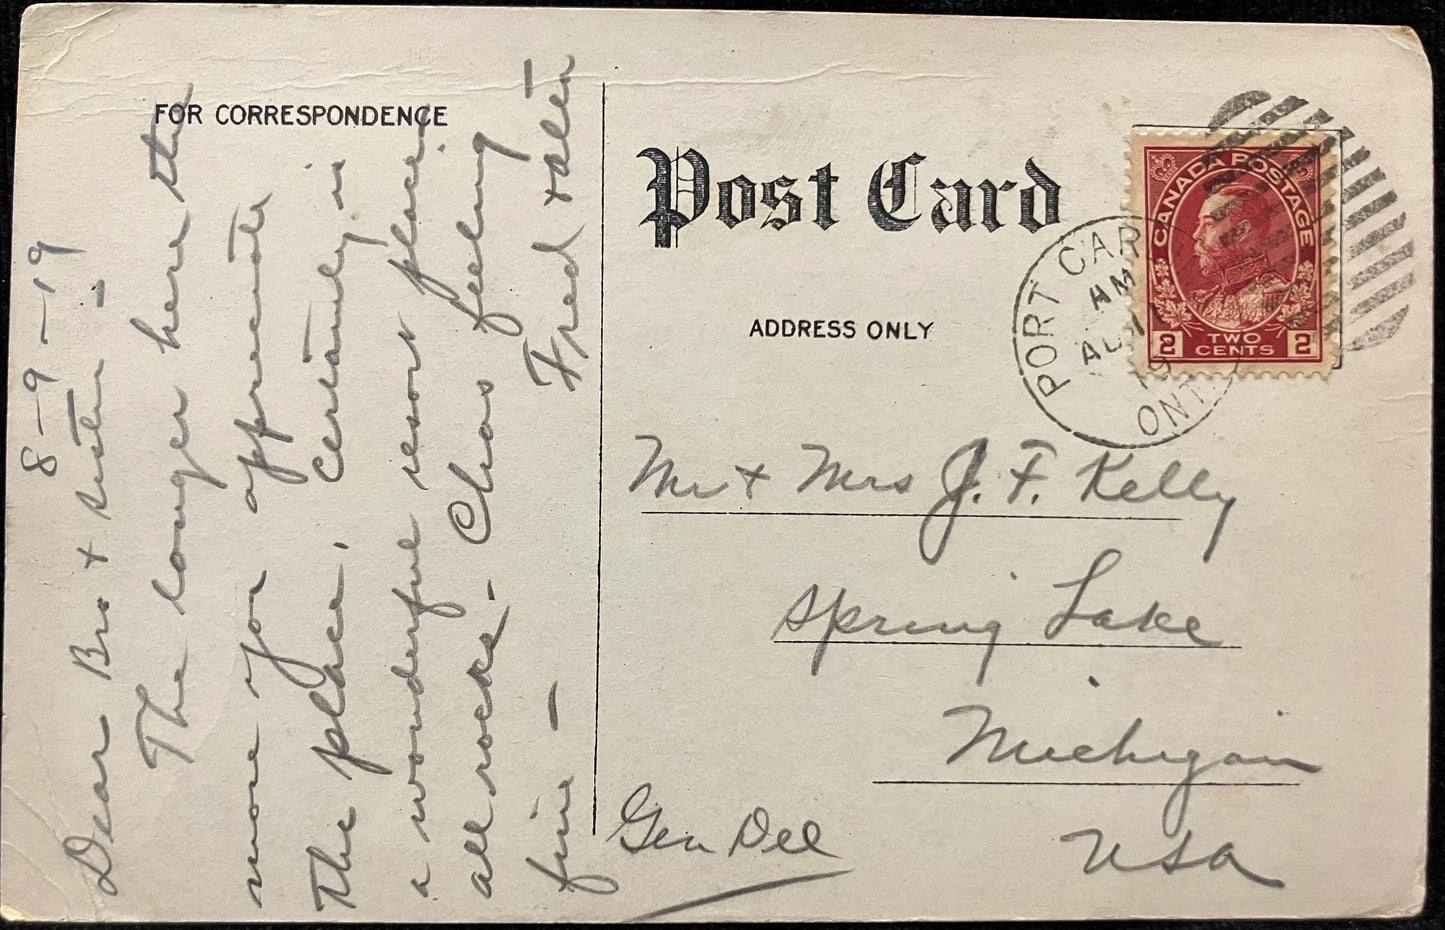 FOR CORRESPONDENCE
8-9-19
Dear Bro + sister -
The longer here the
more you appreciate
the place. Certianly is
a wonderful resort place.
all rocks. Chas feeling
fine -
Fred +
Post Card
ADDRESS ONLY
CANADA POSTAGE
2 TWO CENTS 2
PORT CAR
AM
AU 11
19
ONT.
Mr + Mrs J. F. Kelly
Spring Lake
Michigan
USA
Gen Del